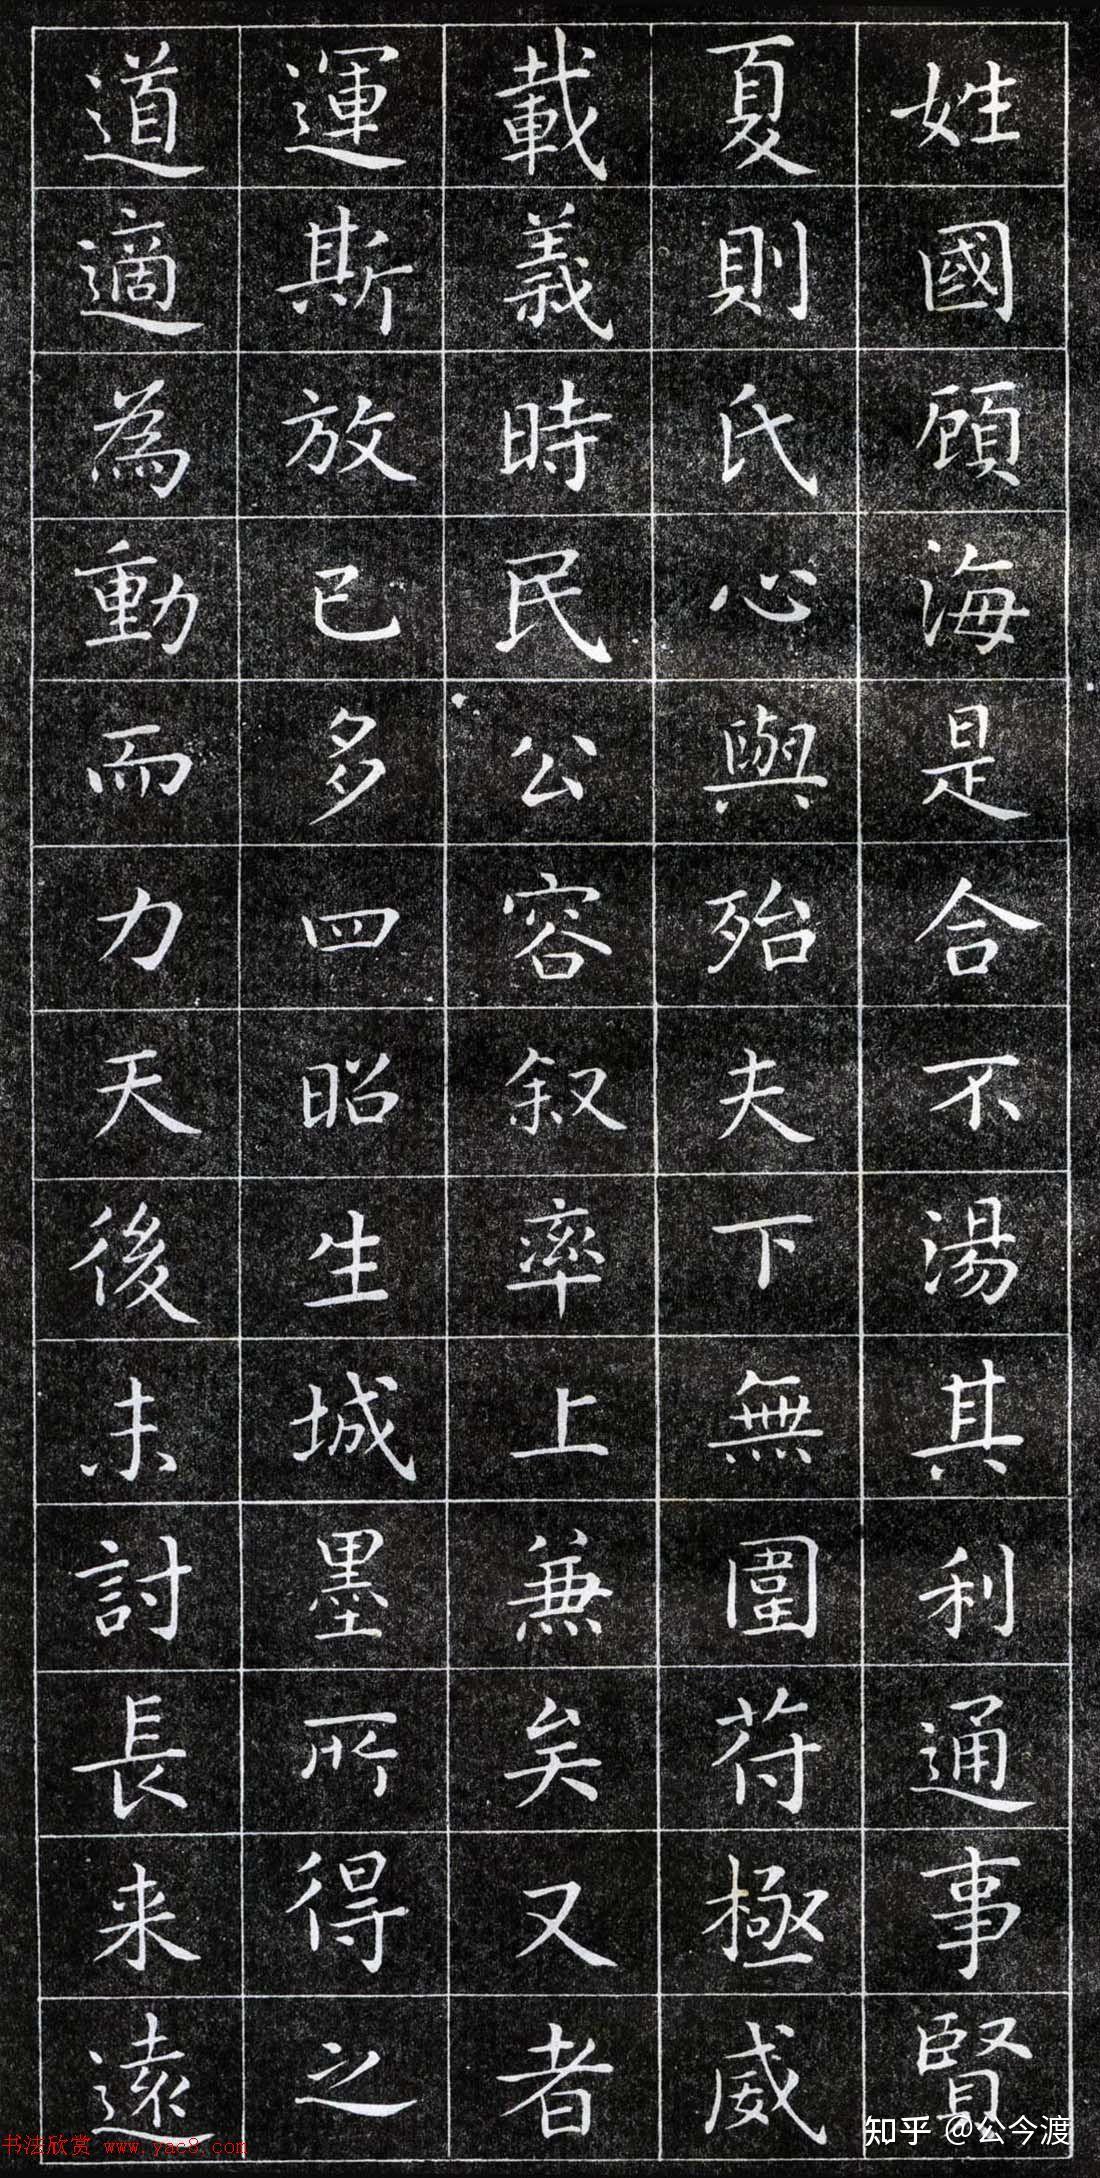 姓國顧海是合不湯其利通事賢
夏則氏心與殆夫下無圍苻極威
載義時民公容叙率上兼矣又者
運斯放已多四昭生城墨所得之
道適為動而力天後未討長来遠
知乎 @公今渡
书法欣赏 www.yac8.com